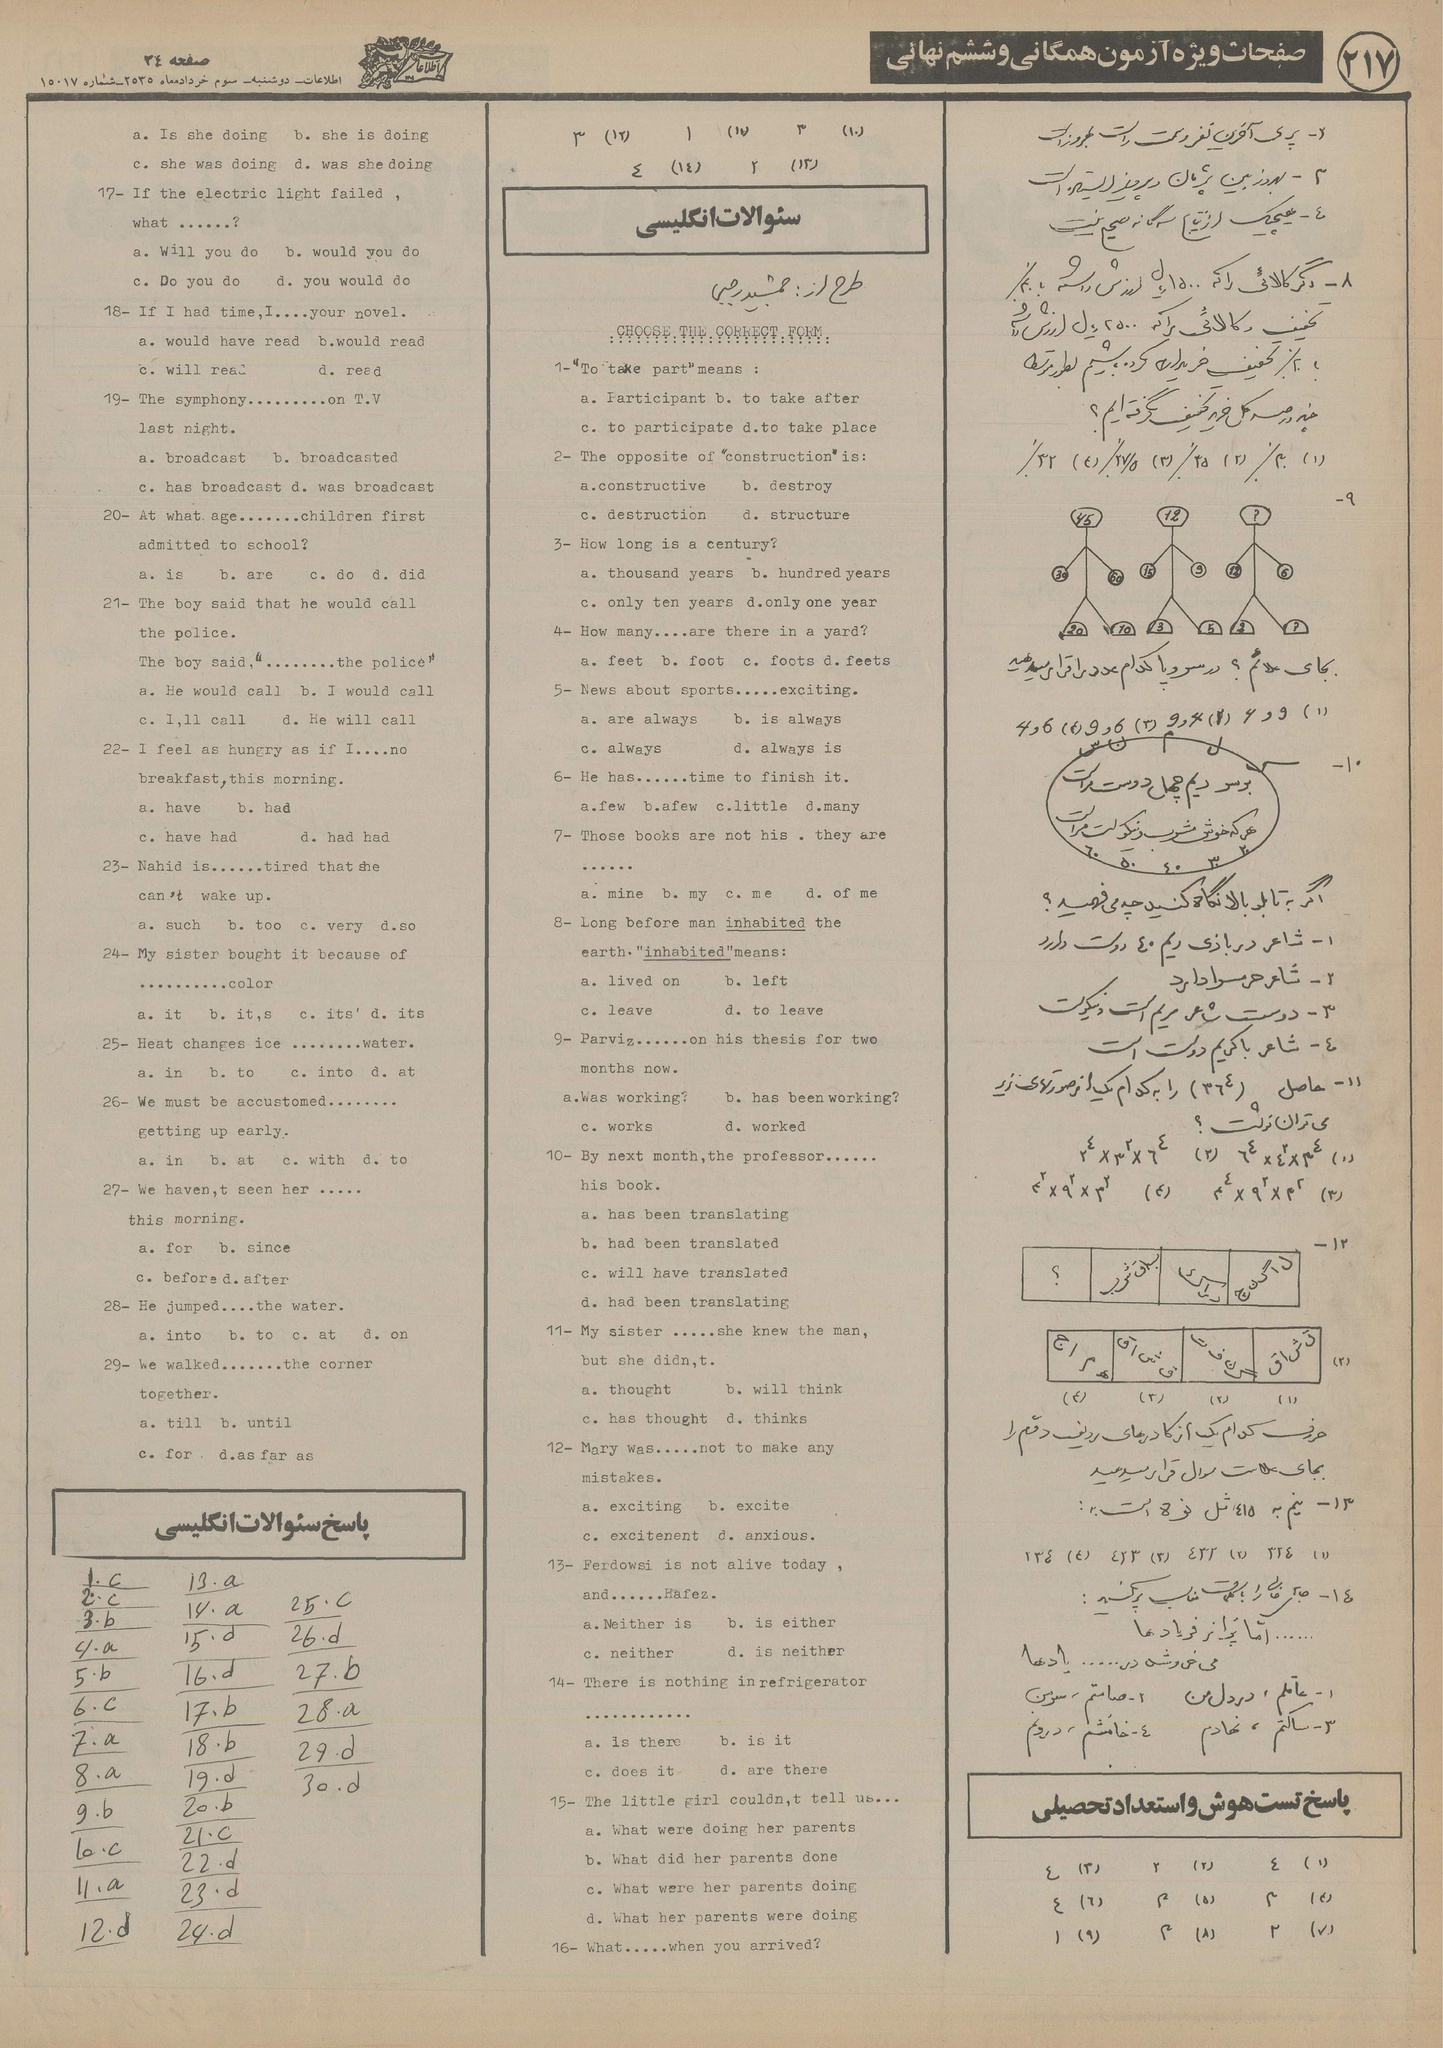 ۲۱۷
صفحات ویژه آزمون همگانی و ششم نهائی
صفحه ۳۴
اطلاعات - دوشنبه - سوم خردادماه ۲۵۳۵ - شماره ۱۵۰۱۷
۳ - بهروز بین پژمان و پرویز ایستاده است
٤ - هیچیک از نتایج سه گانه صحیح نیست
۹-
45 12 ?
30 60 15 9 12 6
20 70 3 5 2 ?
بجای علائم ؟ در سر و پا کدام عدد را قرار میدهید
۱۰-
اگر به تابلو بالا نگاه کنید چه می فهمید ؟
۱- شاعر در بازی ریم ٤۰ دوست دارد
۲- شاعر خر سوا دارد
۳- دوست شاعر مریم است و نیکوست
٤- شاعر با کریم دوست است
۱۱- حاصل (۳٦٤) را به کدام یک از صورتهای زیر
می توان نوشت ؟
۱۲-
؟
(۲)
(۱) (۲) (۳) (٤)
حروف کدام یک از کادرهای ردیف دوم را
بجای علامت سوال قرار میدهید
(۱) ۳۲٤ (۲) ٤۳۲ (۳) ٤۲۳ (٤) ۲۳٤
...... اما پر از فریادها
می خروشد در ..... یادها
۱- عاقلم ، در دل من ۲- صامتم ، سوین
۳- ساکتم ، نهادم ٤- خامشم ، درونم
پاسخ تست هوش و استعداد تحصیلی
(۱) ٤ (۲) ۲ (۳) ٤
(٤) ۳ (۵) ۳ (٦) ٤
(۷) ۲ (۸) ۳ (۹) ۱
(۱۰) ۳ (۱۱) ۱ (۱۲) ۳
(۱۳) ۲ (۱٤) ٤
سئوالات انگلیسی
طرح از : جمشید رجبی
CHOOSE THE CORRECT FORM
1- "To take part" means :
a. Participant b. to take after
c. to participate d.to take place
2- The opposite of "construction" is:
a.constructive b. destroy
c. destruction d. structure
3- How long is a century?
a. thousand years b. hundred years
c. only ten years d.only one year
4- How many....are there in a yard?
a. feet b. foot c. foots d. feets
5- News about sports.....exciting.
a. are always b. is always
c. always d. always is
6- He has......time to finish it.
a.few b.afew c.little d.many
7- Those books are not his . they are
......
a. mine b. my c. me d. of me
8- Long before man inhabited the
earth. "inhabited" means:
a. lived on b. left
c. leave d. to leave
9- Parviz......on his thesis for two
months now.
a.Was working? b. has been working?
c. works d. worked
10- By next month,the professor......
his book.
a. has been translating
b. had been translated
c. will have translated
d. had been translating
11- My sister .....she knew the man,
but she didn,t.
a. thought b. will think
c. has thought d. thinks
12- Mary was.....not to make any
mistakes.
a. exciting b. excite
c. excitenent d. anxious.
13- Ferdowsi is not alive today ,
and......Hafez.
a.Neither is b. is either
c. neither d. is neither
14- There is nothing in refrigerator
............
a. is there b. is it
c. does it d. are there
15- The little girl couldn,t tell us...
a. What were doing her parents
b. What did her parents done
c. What were her parents doing
d. What her parents were doing
16- What.....when you arrived?
a. Is she doing b. she is doing
c. she was doing d. was she doing
17- If the electric light failed ,
what ......?
a. Will you do b. would you do
c. Do you do d. you would do
18- If I had time,I....your novel.
a. would have read b.would read
c. will read d. read
19- The symphony.........on T.V
last night.
a. broadcast b. broadcasted
c. has broadcast d. was broadcast
20- At what age.......children first
admitted to school?
a. is b. are c. do d. did
21- The boy said that he would call
the police.
The boy said,"........the police"
a. He would call b. I would call
c. I,ll call d. He will call
22- I feel as hungry as if I....no
breakfast,this morning.
a. have b. had
c. have had d. had had
23- Nahid is......tired that she
can't wake up.
a. such b. too c. very d.so
24- My sister bought it because of
..........color
a. it b. it,s c. its' d. its
25- Heat changes ice ........water.
a. in b. to c. into d. at
26- We must be accustomed........
getting up early.
a. in b. at c. with d. to
27- We haven,t seen her .....
this morning.
a. for b. since
c. before d. after
28- He jumped....the water.
a. into b. to c. at d. on
29- We walked.......the corner
together.
a. till b. until
c. for d.as far as
پاسخ سئوالات انگلیسی
1. c
2. c
3. b
4. a
5. b
6. c
7. a
8. a
9. b
10. c
11. a
12. d
13. a
14. a
15. d
16. d
17. b
18. b
19. d
20. b
21. c
22. d
23. d
24. d
25. c
26. d
27. b
28. a
29. d
30. d